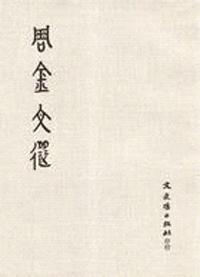 周金文選
文史哲出版社印行